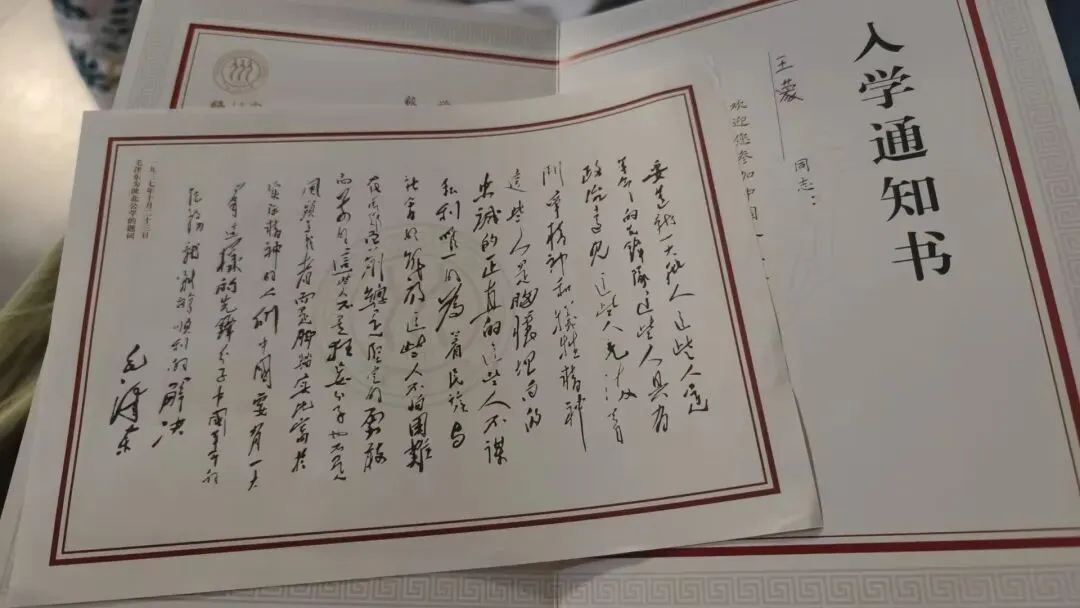 入学通知书
王
同志：
欢迎您参加中国
要造就一大批人这些人是
革命的先锋队这些人具有
政治远见这些人充满着
鬥争精神和犧牲精神
这些人是胸懷坦白的
忠诚的正直的这些人不谋
私利唯一的为着民族与
社会的解放这些人不怕困難
在困難面前總是坚定的勇敢
向前的这些人不是狂妄分子也不是
风头主义者而是脚踏实地富於
实际精神的人们中國要有一大
群这樣的先锋分子中國革命的
任務就能够顺利的解决
毛泽东
一九三七年十月二十三日
毛泽东为陕北公学的题词